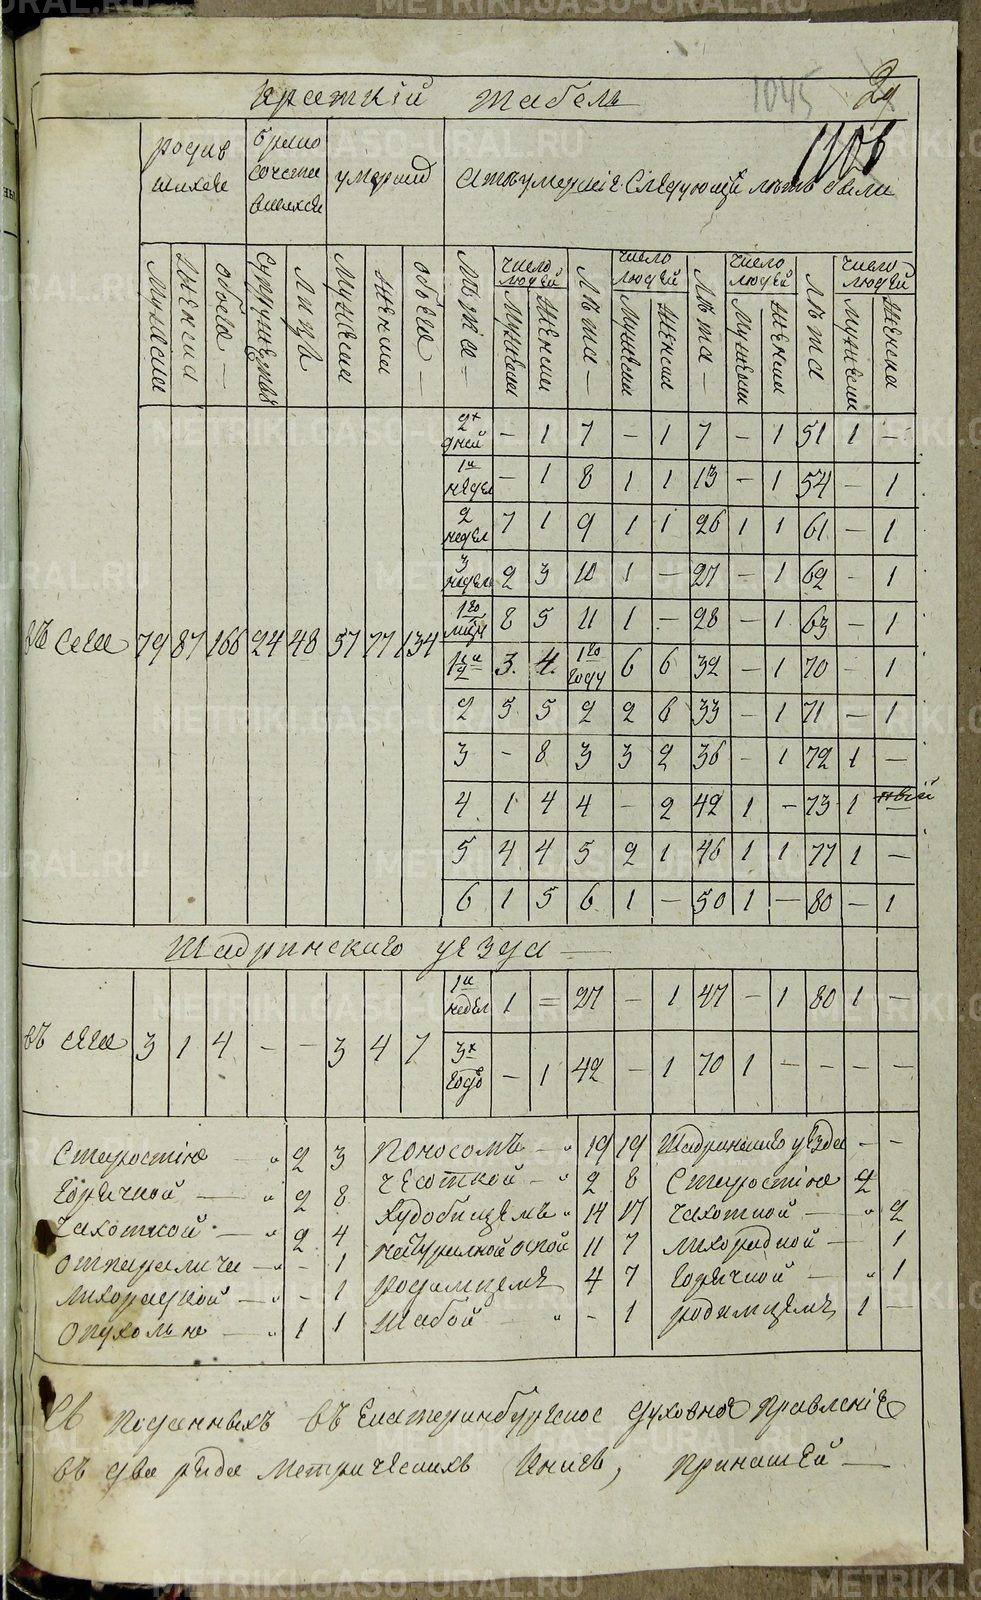 METRIKI.GASO-URAL.RU
1045 29
Краткій Табель
1106
родив шихся
брако сочета вшихся
умерши
а тѣ умершіе Слѣдующій лѣтъ были
Мужеска
Женска
обоего —
Супружествъ
Лицъ
Мужеска
Женска
обоего —
Лѣта —
число людей
Мужеска
Женска
Лѣта —
число людей
Мужеска
Женска
Лѣта —
число людей
Мужеска
Женска
Лѣта
число людей
Мужеска
Женска
2х дней – 1 7 – 1 7 – 1 51 1 –
1й недел – 1 8 1 1 13 – 1 54 – 1
2 недел 7 1 9 1 1 26 1 1 61 – 1
3 недел 2 3 10 1 – 27 – 1 62 – 1
1го мцы 8 5 11 1 – 28 – 1 63 – 1
въ селе 79 87 166 24 48 57 77 134
3. 4. 1го году 6 6 32 – 1 70 – 1
2 5 5 2 2 6 33 – 1 71 – 1
3 – 8 3 3 2 36 – 1 72 1 –
4 1 4 4 – 2 42 1 – 73 1 –
5 4 4 5 2 1 46 1 1 77 1 –
6 1 5 6 1 – 50 1 – 80 – 1
Шадринскаго уезда —
1й недел 1 = 27 – 1 47 – 1 80 1 –
въ селе 3 1 4 – – 3 4 7
3х годо – 1 42 – 1 70 1 – – – –
Старостію „ 2 3 Поносомъ – „ 19 19 Шадринскаго уезда – –
Горячкой — „ 2 8 чесоткой – „ 2 8 Старостію 2
Чахоткой – „ 2 4 Худобищемъ „ 14 17 чахоткой — „ 2
Отпаралича – „ – 1 Натуралной оспой 11 7 лихорадкой – 1
Лихорадкой – „ – 1 родимцемъ 4 7 Горячкой — „ 1
Опухолью – „ 1 1 Жабой – „ – 1 родимцемъ 1 –
Св поданныхъ въ Екатеринбургское Духовное Правленіе
въ два ряда Метрическихъ Книгъ, Принашей —